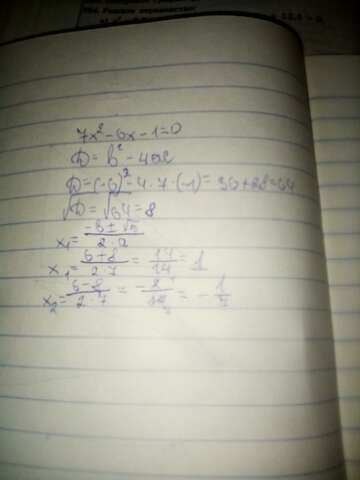 7x² - 6x - 1 = 0
D = b² - 4ac
D = (-6)² - 4 · 7 · (-1) = 36 + 28 = 64
√D = √64 = 8
x₁ = (-b ± √D) / (2 · a)
x₁ = (6 + 8) / (2 · 7) = 14 / 14 = 1
x₂ = (6 - 8) / (2 · 7) = - 2 / 14 = - 1 / 7